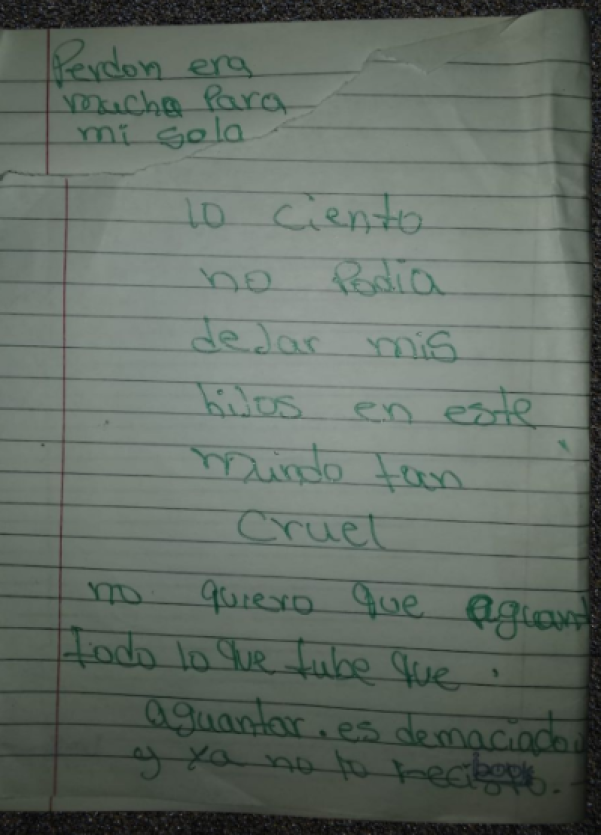 Perdon era
mucho Para
mi sola
lo ciento
no Podia
dejar mis
hijos en este
mundo tan
cruel
no quiero que aguant
todo lo que tube que
aguantar. es demaciado
y ya no lo